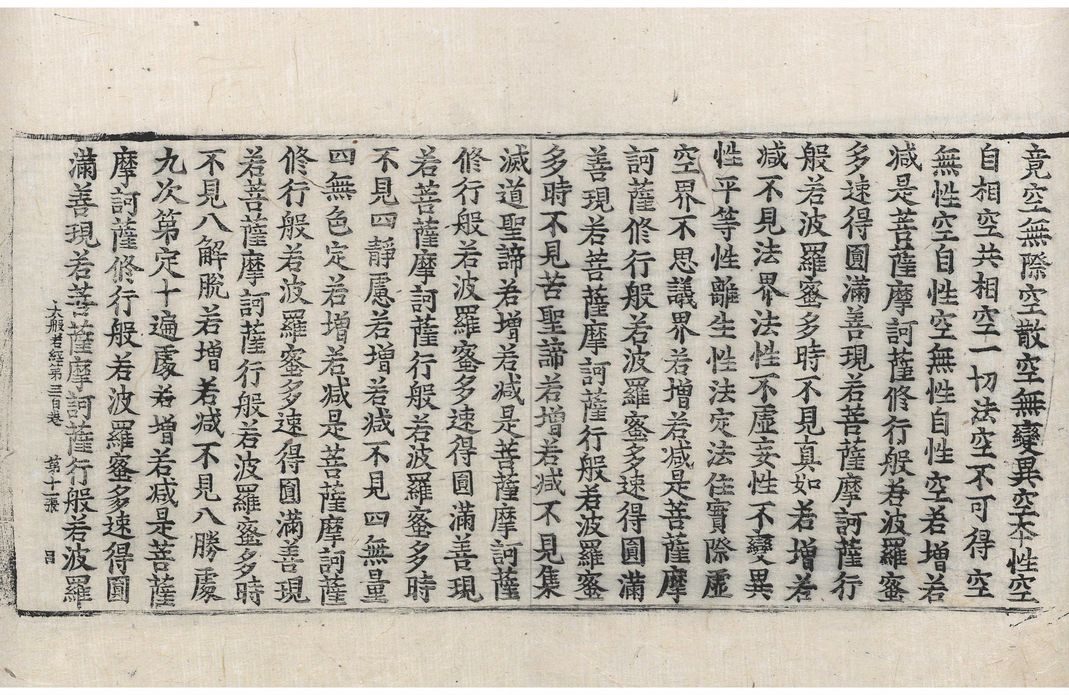 竟空無際空散空無變異空本性空
自相空共相空一切法空不可得空
無性空自性空無性自性空若增若
减是菩薩摩訶薩修行般若波羅蜜
多速得圓滿善現若菩薩摩訶薩行
般若波羅蜜多時不見真如若增若
减不見法界法性不虛妄性不變異
性平等性離生性法定法住實際虛
空界不思議界若增若减是菩薩摩
訶薩修行般若波羅蜜多速得圓滿
善現若菩薩摩訶薩行般若波羅蜜
多時不見苦聖諦若增若减不見集
滅道聖諦若增若减是菩薩摩訶薩
修行般若波羅蜜多速得圓滿善現
若菩薩摩訶薩行般若波羅蜜多時
不見四靜慮若增若减不見四無量
四無色定若增若减是菩薩摩訶薩
修行般若波羅蜜多速得圓滿善現
若菩薩摩訶薩行般若波羅蜜多時
不見八解脫若增若减不見八勝處
九次第定十遍處若增若减是菩薩
摩訶薩修行般若波羅蜜多速得圓
滿善現若菩薩摩訶薩行般若波羅
大般若經第三百卷 第十一張 目